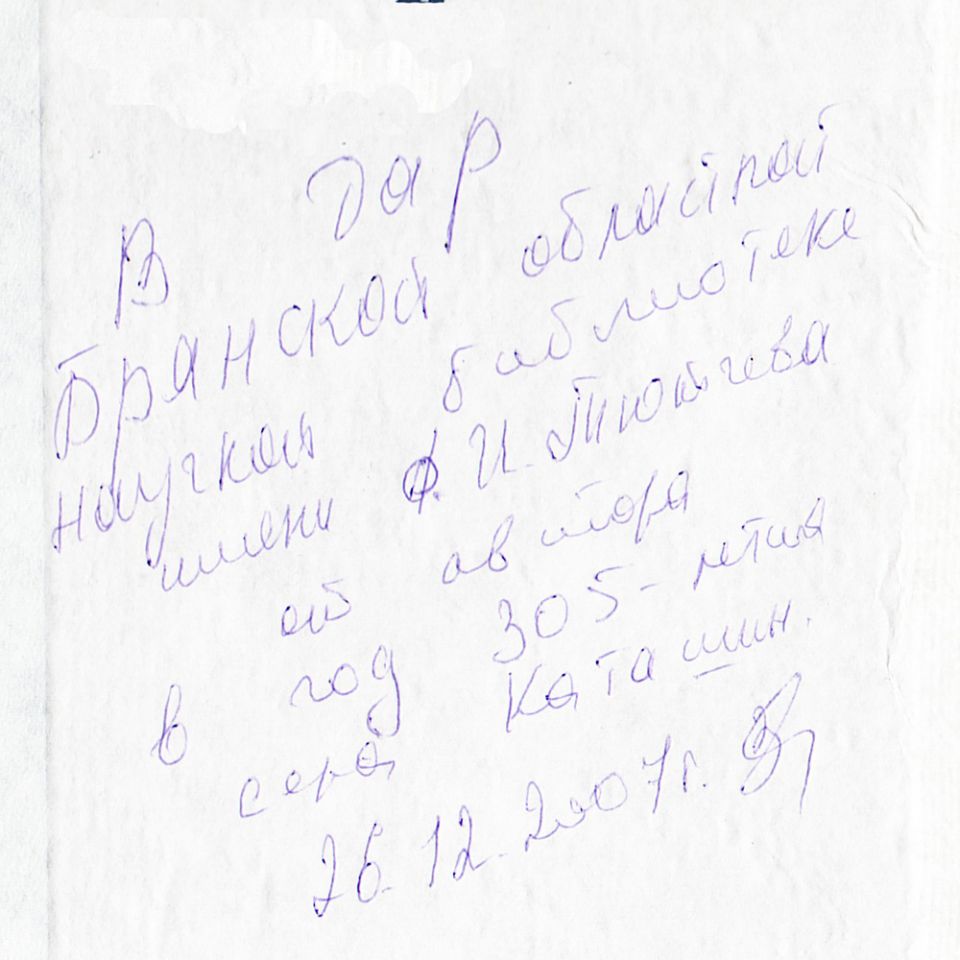 В дар
Брянской областной
научной библиотеке
имени Ф. И. Тютчева
от автора
в год 305-летия
села Каташин.
26.12.2007г.